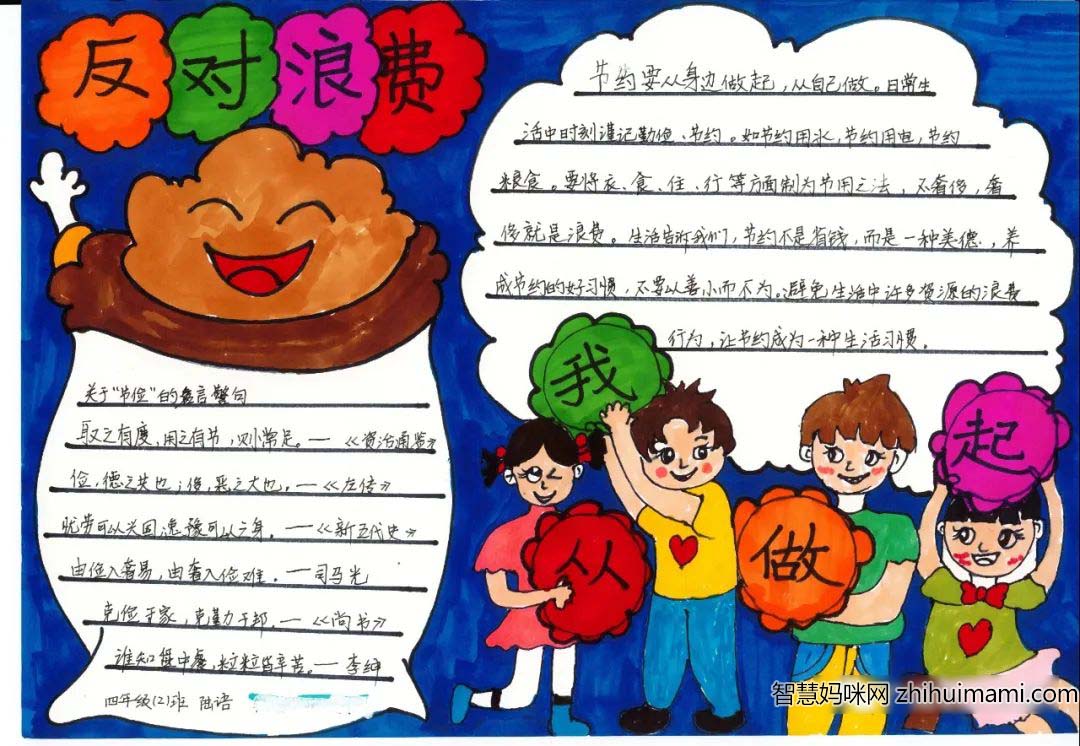 反对浪费
节约要从身边做起，从自己做。日常生
活中时刻谨记勤俭、节约。如节约用水，节约用电，节约
粮食。要将衣、食、住、行等方面制为节用之法，不奢侈，奢
侈就是浪费。生活告诉我们，节约不是省钱，而是一种美德，养
成节约的好习惯，不要以善小而不为。避免生活中许多资源的浪费
行为，让节约成为一种生活习惯。
我从做起
关于“节俭”的名言警句
取之有度，用之有节，则常足。—《资治通鉴》
俭，德之共也；侈，恶之大也。—《左传》
忧劳可以兴国，逸豫可以亡身。—《新五代史》
由俭入奢易，由奢入俭难。—司马光
克俭于家，克勤于邦。—《尚书》
谁知盘中餐，粒粒皆辛苦。—李绅
四年级(2)班 陆语
智慧妈咪网 zhihuimami.com